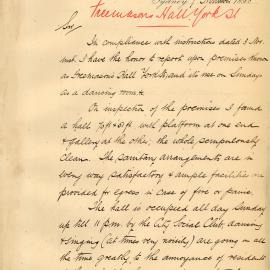 Sydney 9 December
Freemasons Hall York St
Sir
In compliance with instructions dated 3 Nov.
inst. I have the honor to report upon premises known
as Freemasons Hall York St, and its use on Sundays
as a dancing room &c
On inspection of the premises I found
a hall 70ft x 51ft with platform at one end
& gallery at the other, the whole scrupulously
clean. The sanitary arrangements are in
every way satisfactory & ample facilities are
provided for egress in case of fire or panic.
The hall is occupied all day Sunday
up till 11 p.m. by the City Social Club, dancing
& singing (at times very noisy) are going on all
the time greatly to the annoyance of residents